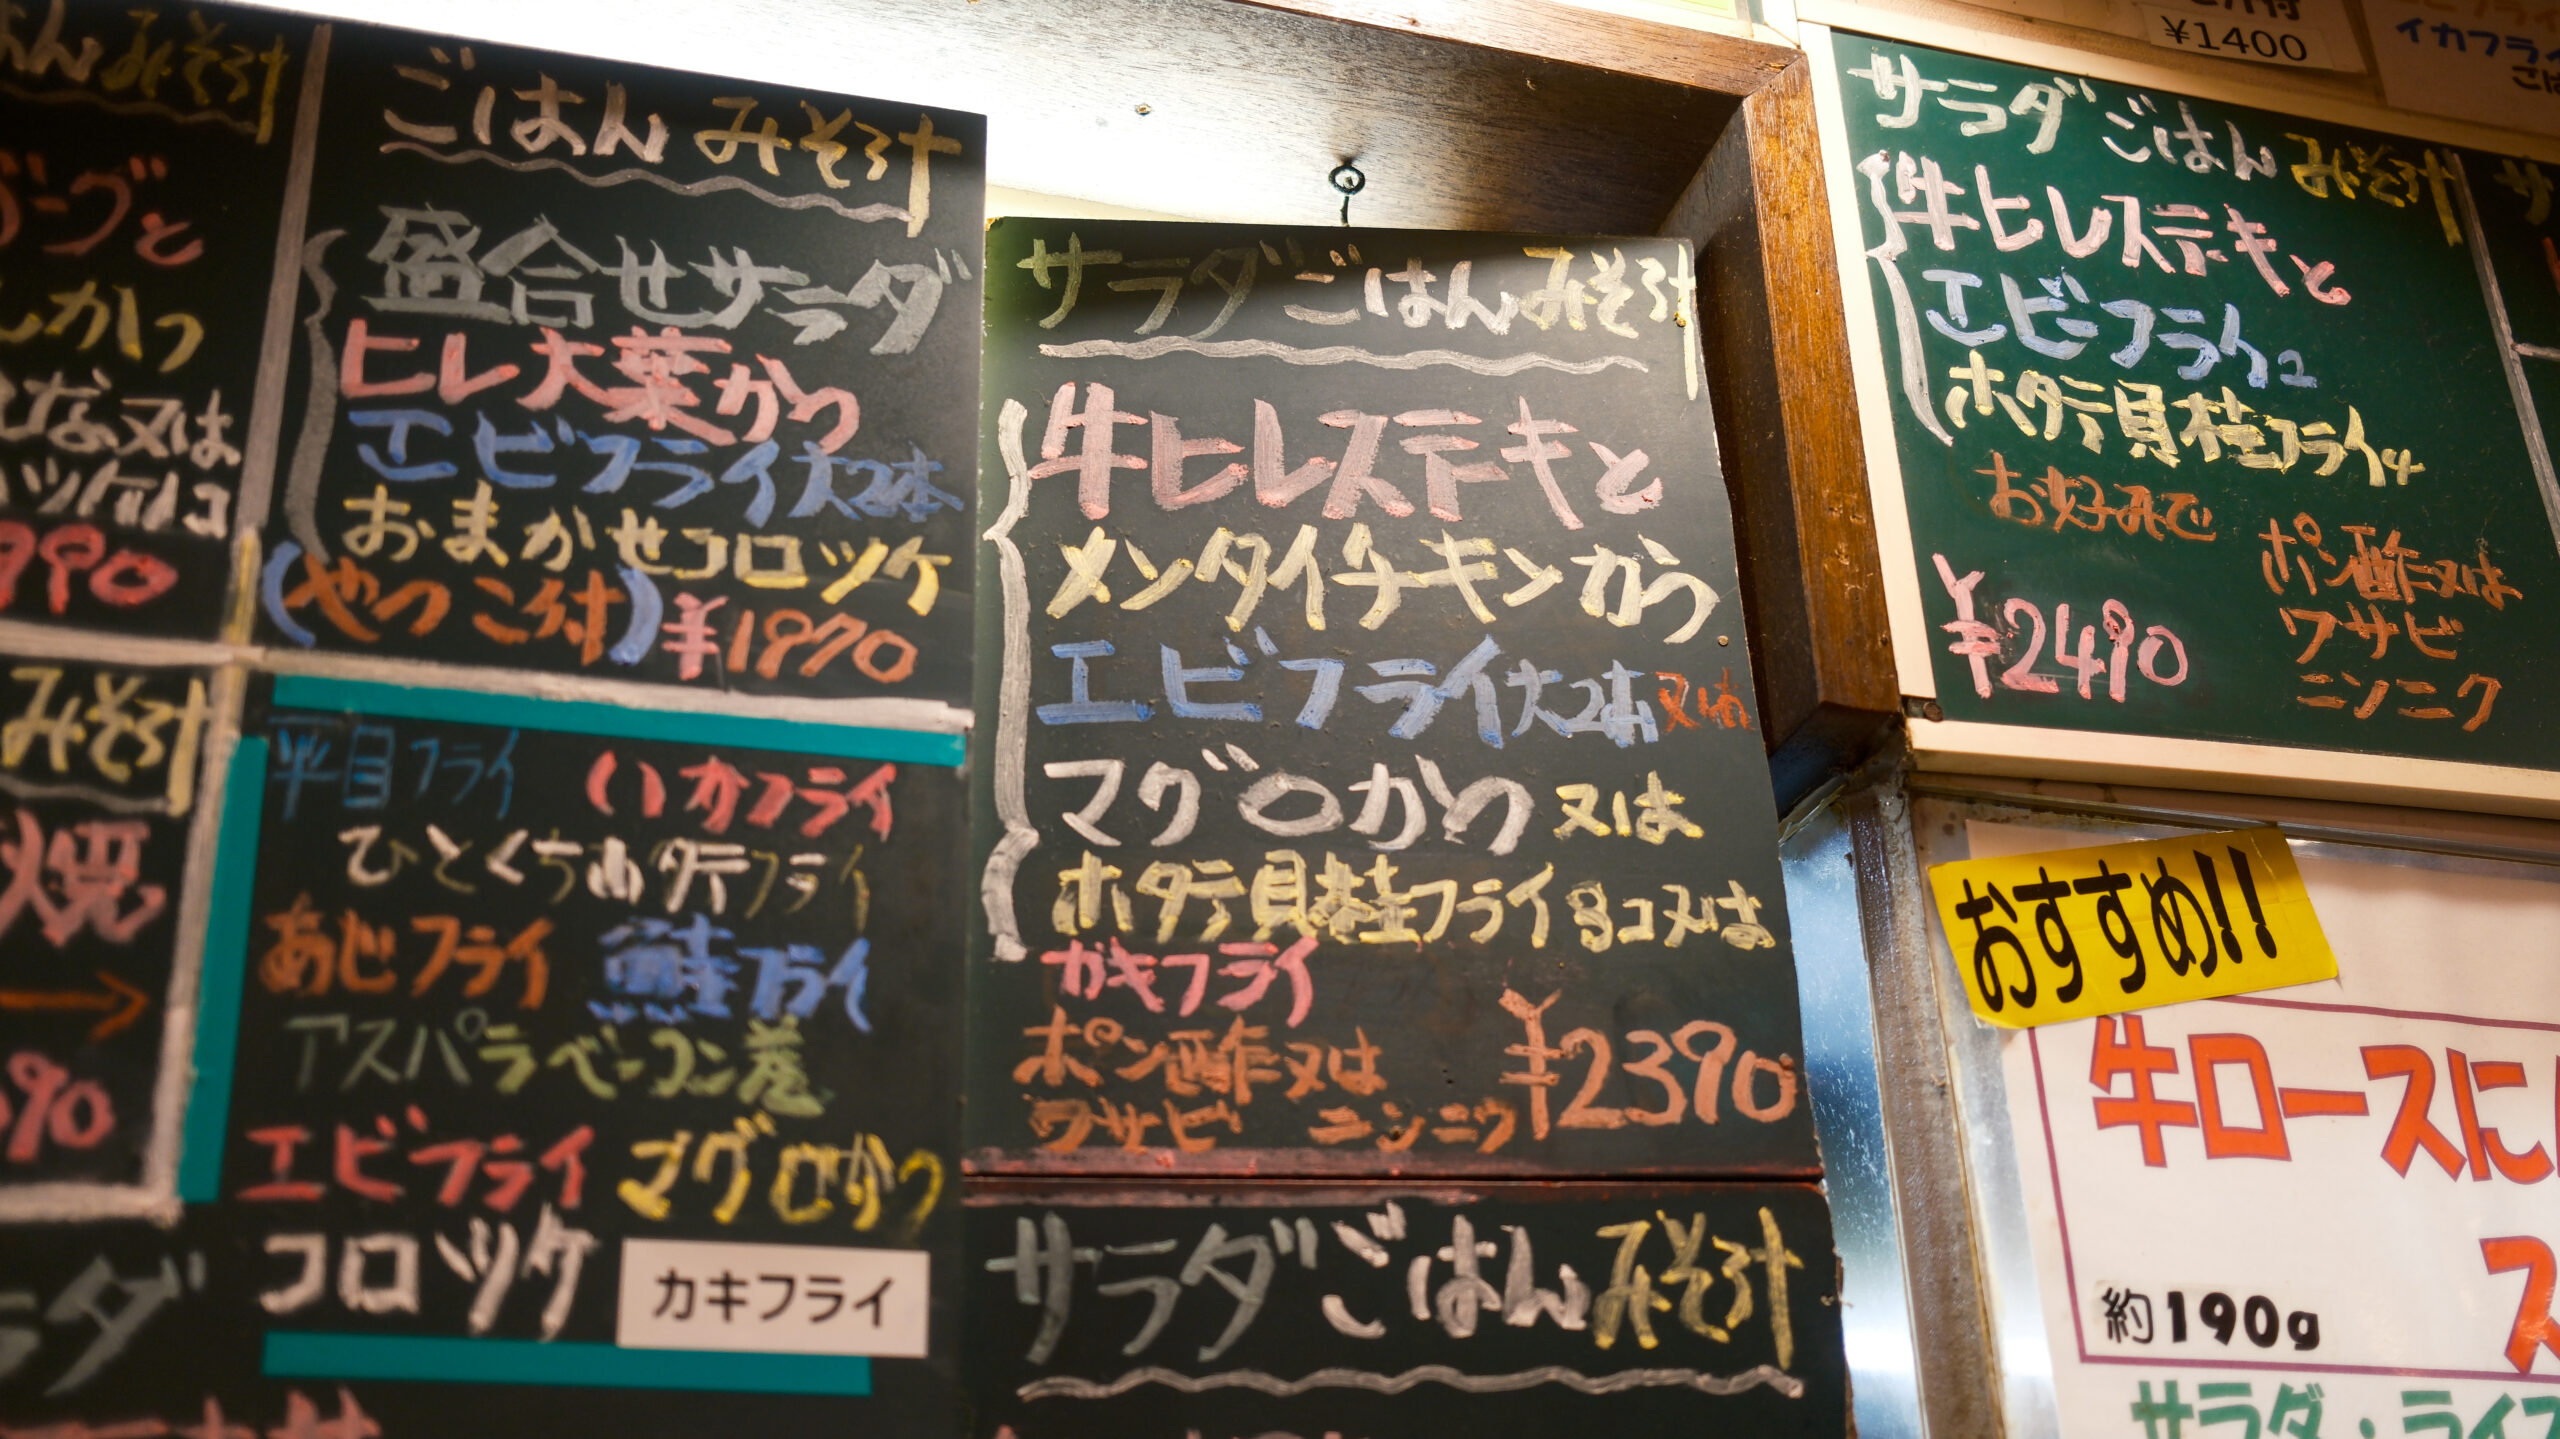 みそ汁
グと
かつ
又は
990
みそ汁
焼
→
90
ラダ
ごはん みそ汁
盛合せサラダ
ヒレ大葉かつ
エビフライ大2本
おまかせコロッケ
(やっこ付) ¥1870
平目フライ いかフライ
ひとくちホタテフライ
あじフライ 鮭フライ
アスパラベーコン巻
エビフライ マグロかつ
コロッケ カキフライ
サラダ ごはん みそ汁
牛ヒレステーキと
メンタイチキンかつ
エビフライ大2本 又は
マグロかつ 又は
ホタテ貝柱フライ3コ又は
カキフライ
ポン酢又は
ワサビ ニンニク ¥2390
サラダ ごはん みそ汁
¥1400
イカフライ
サラダ ごはん みそ汁
牛ヒレステーキと
エビフライ2
ホタテ貝柱フライ4
お好みで
ポン酢又は
ワサビ
ニンニク
¥2490
おすすめ!!
牛ロースに
ス
約190g
サラダ・ライス